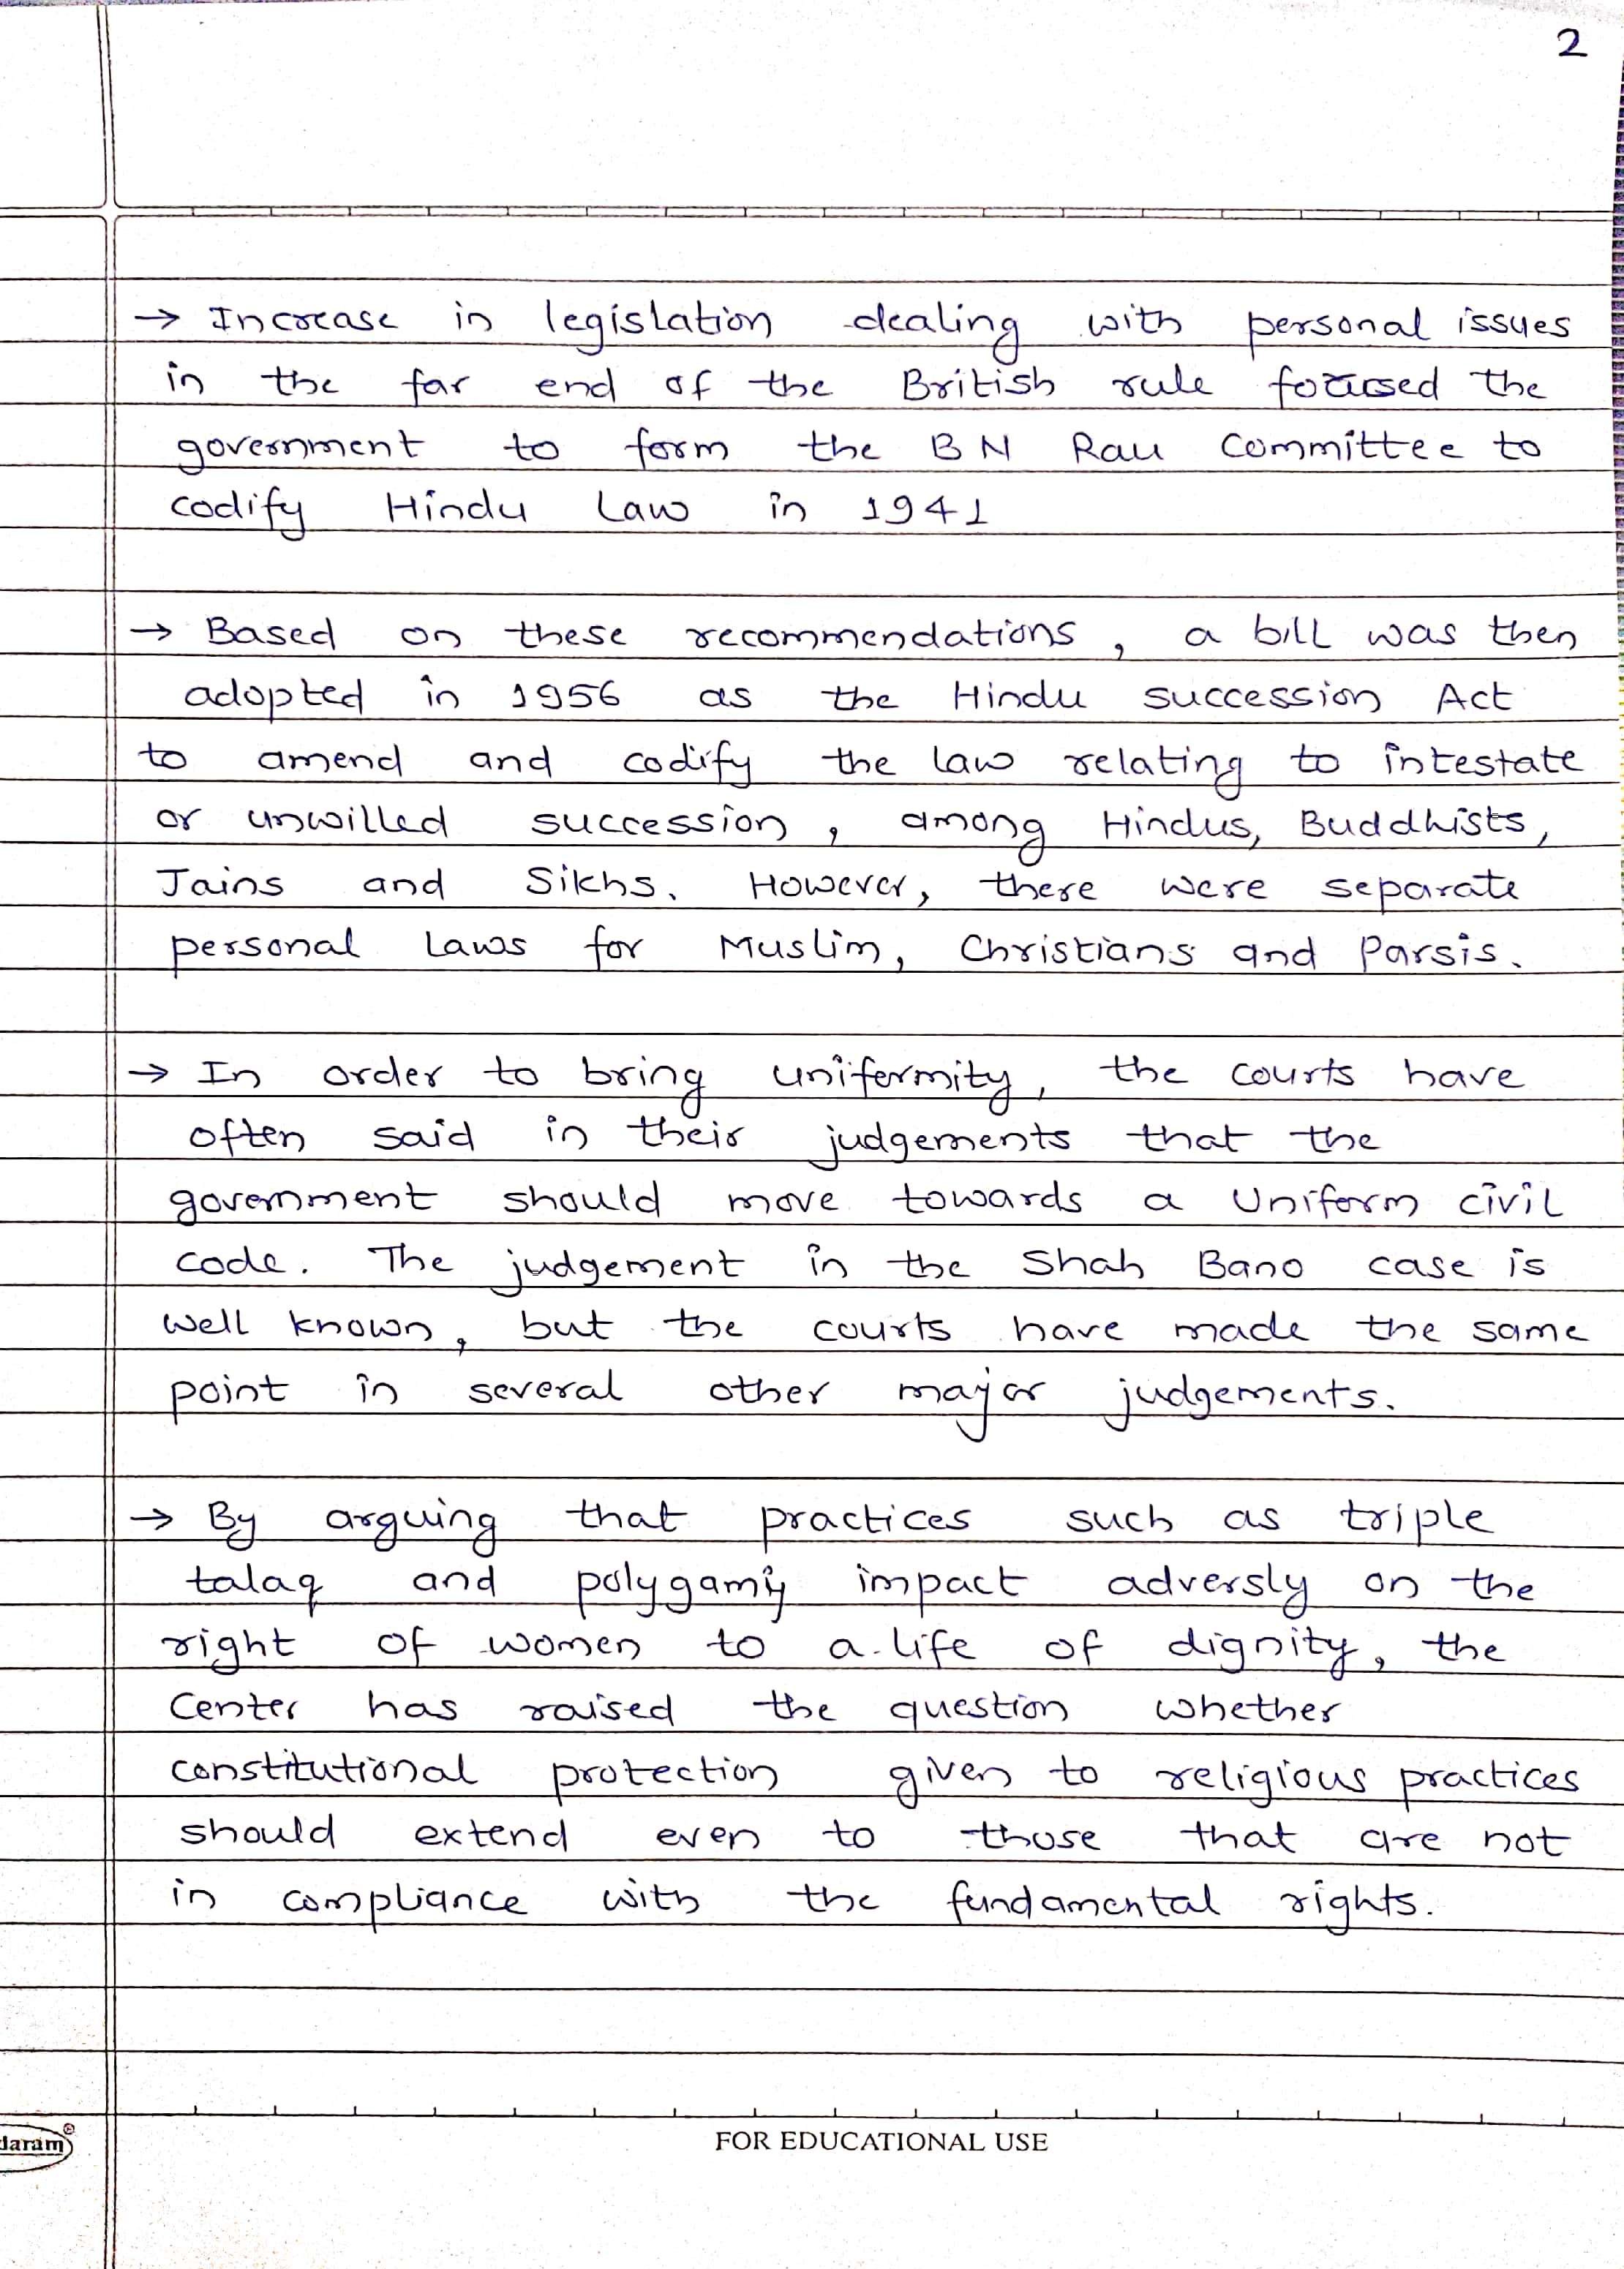 2
→ Increase in legislation dealing with personal issues
in the far end of the British rule the
government to form the BN Rau Committee to
codify Hindu Law in 1941
→ Based on these recommendations, a bill was then
adopted in 1956 as the Hindu succession Act
to amend and codify the law relating to intestate
or unwilled succession, among Hindus, Buddhists,
Jains and Sikhs. However, there were separate
personal laws for Muslim, Christians and Parsis.
→ In order to bring uniformity, the courts have
often said in their judgements that the
government should move towards a Uniform civil
code. The judgement in the Shah Bano case is
well known, but the courts have made the same
point in several other major judgements.
→ By arguing that practices such as triple
talaq and polygamy impact adversly on the
right of women to a life of dignity, the
Center has raised the question whether
constitutional protection given to religious practices
should extend even to those that are not
in compliance with the fundamental rights.
daram
FOR EDUCATIONAL USE